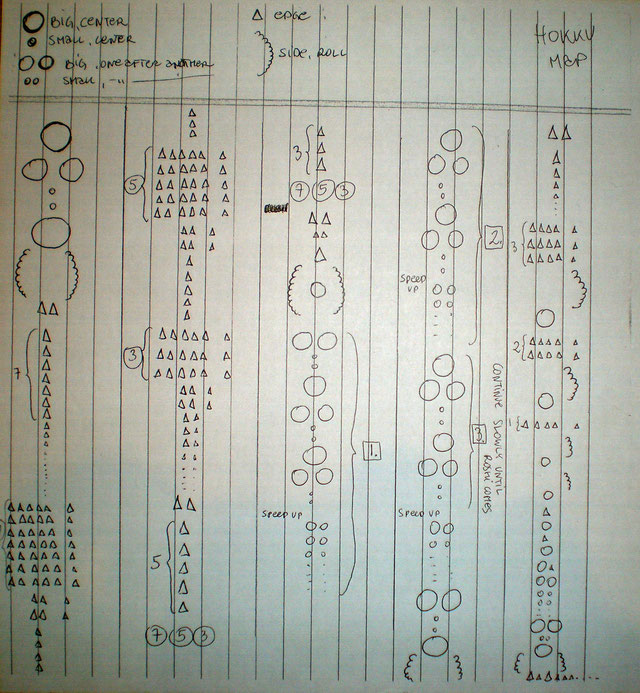 BIG, CENTER
SMALL, CENTER
BIG, ONE AFTER ANOTHER
SMALL, -"-
EDGE
SIDE, ROLL
HOKKU
MAP
7
5
3
5
7 5 3
3
7 5 3
1.
SPEED UP
2.
SPEED
UP
3.
CONTINUE SLOWLY UNTIL
ROSHI COMES
SPEED UP
3
2
1